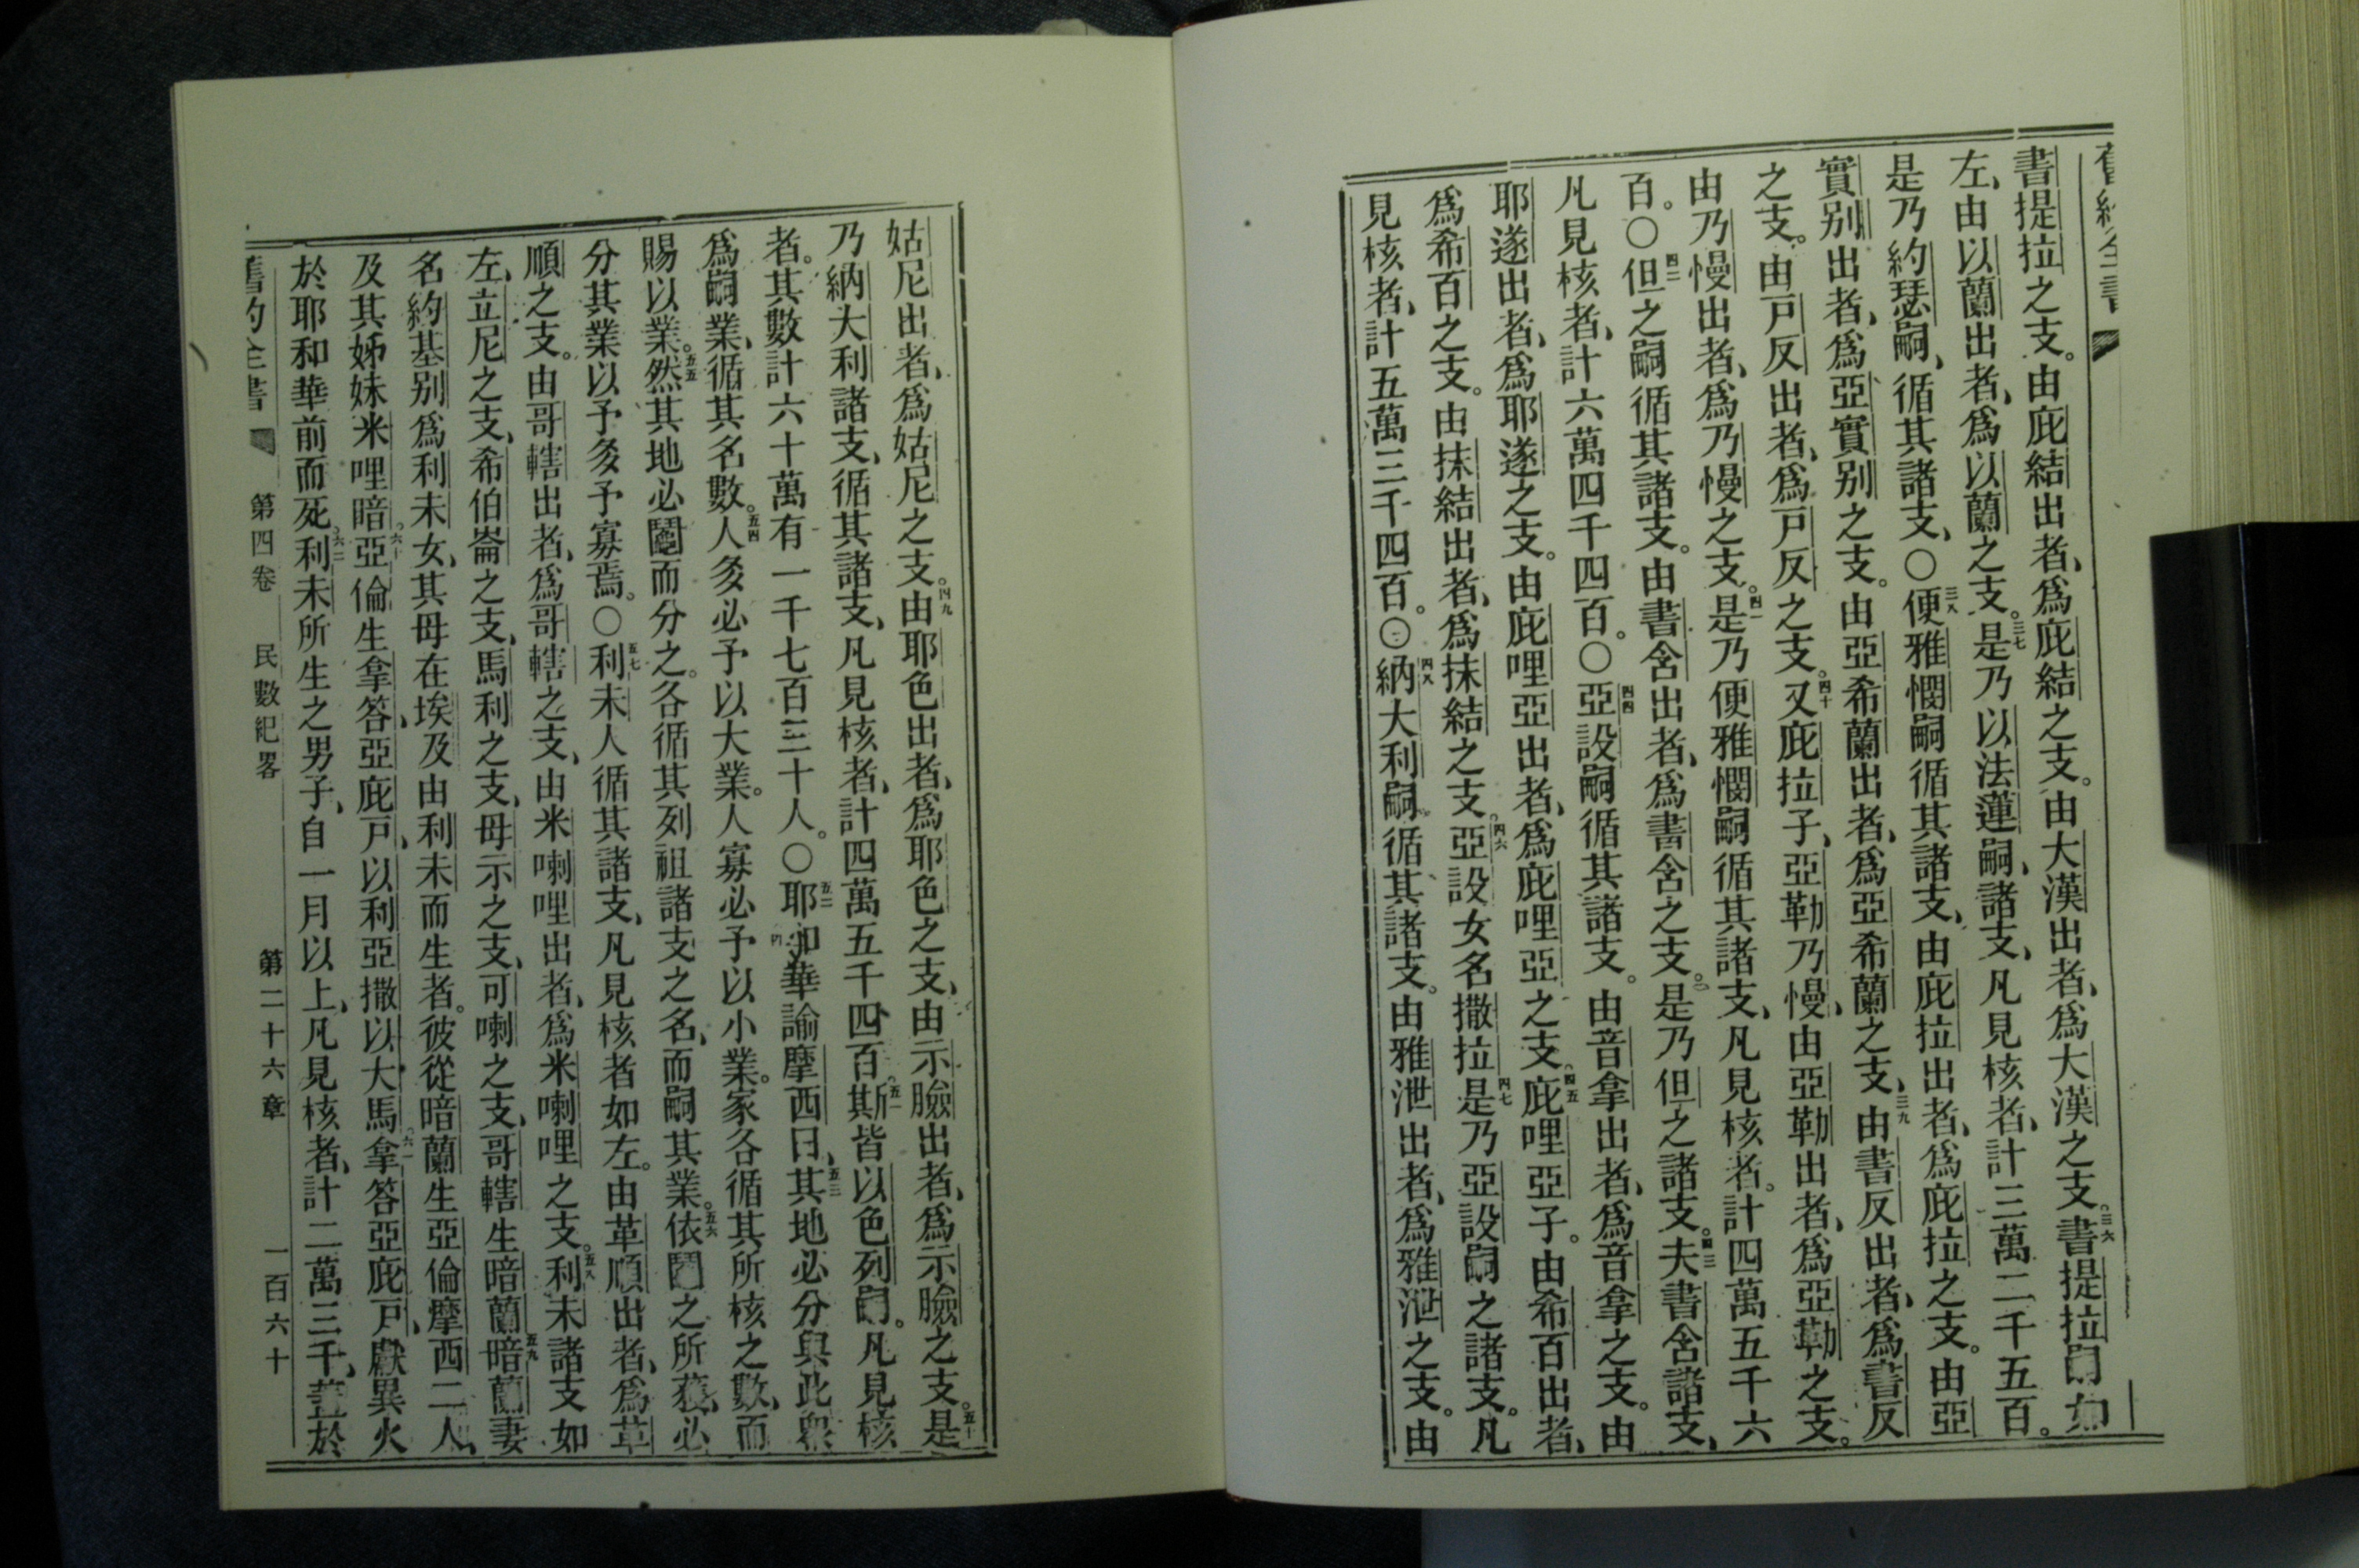 舊約全書
書提拉之支。由庇結出者、爲庇結之支。由大漢出者、爲大漢之支。三六書提拉嗣如
左、由以蘭出者、爲以蘭之支。三七是乃以法蓮嗣、諸支、凡見核者、計三萬二千五百。
是乃約瑟嗣、循其諸支、〇三八便雅憫嗣循其諸支、由庇拉出者、爲庇拉之支。由亞
實別出者、爲亞實別之支。由亞希蘭出者、爲亞希蘭之支、三九由書反出者、爲書反
之支。由戸反出者、爲戸反之支。四十又庇拉子、亞勒乃慢、由亞勒出者、爲亞勒之支。
由乃慢出者、爲乃慢之支。四一是乃便雅憫嗣循其諸支、凡見核者。計四萬五千六
百。〇四二但之嗣循其諸支。由書含出者、爲書含之支。是乃但之諸支。四三夫書含諸支、
凡見核者、計六萬四千四百。〇四四亞設嗣循其諸支。由音拿出者、爲音拿之支。由
耶遂出者、爲耶遂之支。由庇哩亞出者、爲庇哩亞之支。四五庇哩亞子。由希百出者、
爲希百之支。由抹結出者、爲抹結之支。四六亞設女名撒拉四七是乃亞設嗣之諸支。凡
見核者、計五萬三千四百。〇四八納大利嗣。循其諸支。由雅泄出者、爲雅泄之支。由
姑尼出者、爲姑尼之支。四九由耶色出者、爲耶色之支、由示臉出者、爲示臉之支。五十是
乃納大利諸支、循其諸支、凡見核者、計四萬五千四百。五一斯皆以色列嗣。凡見核
者。其數計六十萬有一千七百三十人。〇五二耶和華諭摩西曰、五三其地必分與此衆
爲嗣業、循其名數。五四人多必予以大業。人寡必予以小業。家各循其所核之數、而
賜以業。五五然其地必鬮而分之。各循其列祖諸支之名、而嗣其業。五六依鬮之所獲、必
分其業以予多予寡焉。〇五七利未人循其諸支、凡見核者如左。由革順出者、爲革
順之支。由哥轄出者、爲哥轄之支、由米喇哩出者、爲米喇哩之支。五八利未諸支如
左、立尼之支、希伯崙之支、馬利之支、母示之支、可喇之支、哥轄生暗蘭五九暗蘭妻
名約基別爲利未女、其母在埃及由利未而生者。彼從暗蘭生亞倫摩西二人、
及其姊妹米哩暗。六十亞倫生拿答、亞庇戸、以利亞撒以大馬六一拿答亞庇戸、獻異火
於耶和華前而死。六二利未所生之男子、自一月以上、凡見核者、計二萬三千、蓋於
舊約全書 第四卷 民數紀畧 第二十六章 一百六十